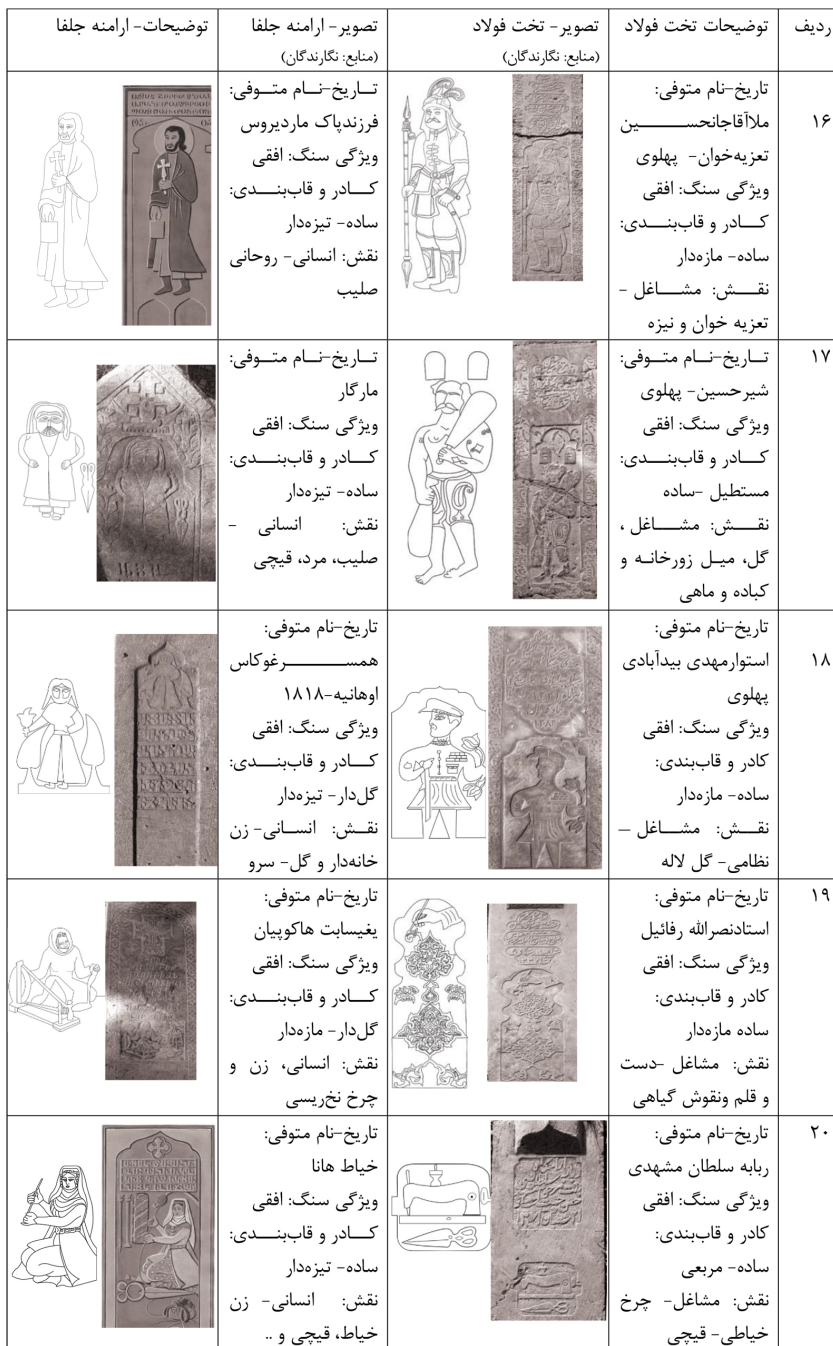 ردیف
توضیحات تخت فولاد
تصویر- تخت فولاد
(منابع: نگارندگان)
تصویر- ارامنه جلفا
(منابع: نگارندگان)
توضیحات- ارامنه جلفا
۱۶
تاریخ-نام متوفی:
ملاآقاجانحســـــــین
تعزیه‌خوان- پهلوی
ویژگی سنگ: افقی
کـــادر و قاب‌بنـــدی:
ساده- مازه‌دار
نقـــش: مشـــاغل -
تعزیه خوان و نیزه
تـــاریخ-نـــام متـــوفی:
فرزندپاک ماردیروس
ویژگی سنگ: افقی
کـــادر و قاب‌بنـــدی:
ساده- تیزه‌دار
نقش: انسانی- روحانی
صلیب
۱۷
تـــاریخ-نـــام متـــوفی:
شیرحسین- پهلوی
ویژگی سنگ: افقی
کـــادر و قاب‌بنـــدی:
مستطیل -ساده
نقـــش: مشـــاغل ،
گل، میـل زورخانـه و
کباده و ماهی
تـــاریخ-نـــام متـــوفی:
مارگار
ویژگی سنگ: افقی
کـــادر و قاب‌بنـــدی:
ساده- تیزه‌دار
نقش: انسانی -
صلیب، مرد، قیچی
۱۸
تاریخ-نام متوفی:
استوارمهدی بیدآبادی
پهلوی
ویژگی سنگ: افقی
کادر و قاب‌بندی:
ساده- مازه‌دار
نقـــش: مشـــاغل –
نظامی- گل لاله
تاریخ-نام متوفی:
همســـــــرغوکاس
اوهانیه-۱۸۱۸
ویژگی سنگ: افقی
کـــادر و قاب‌بنـــدی:
گل‌دار- تیزه‌دار
نقـــش: انســـانی- زن
خانه‌دار و گل- سرو
۱۹
تاریخ-نام متوفی:
استادنصرالله رفائیل
ویژگی سنگ: افقی
کادر و قاب‌بندی:
ساده مازه‌دار
نقش: مشاغل -دست
و قلم ونقوش گیاهی
تاریخ-نام متوفی:
یغیسابت هاکوپیان
ویژگی سنگ: افقی
کـــادر و قاب‌بنـــدی:
گل‌دار- مازه‌دار
نقش: انسانی، زن و
چرخ نخ‌ریسی
۲۰
تاریخ-نام متوفی:
ربابه سلطان مشهدی
ویژگی سنگ: افقی
کادر و قاب‌بندی:
ساده- مربعی
نقش: مشاغل- چرخ
خیاطی- قیچی
تاریخ-نام متوفی:
خیاط هانا
ویژگی سنگ: افقی
کـــادر و قاب‌بنـــدی:
ساده- تیزه‌دار
نقش: انسانی- زن
خیاط، قیچی و ..